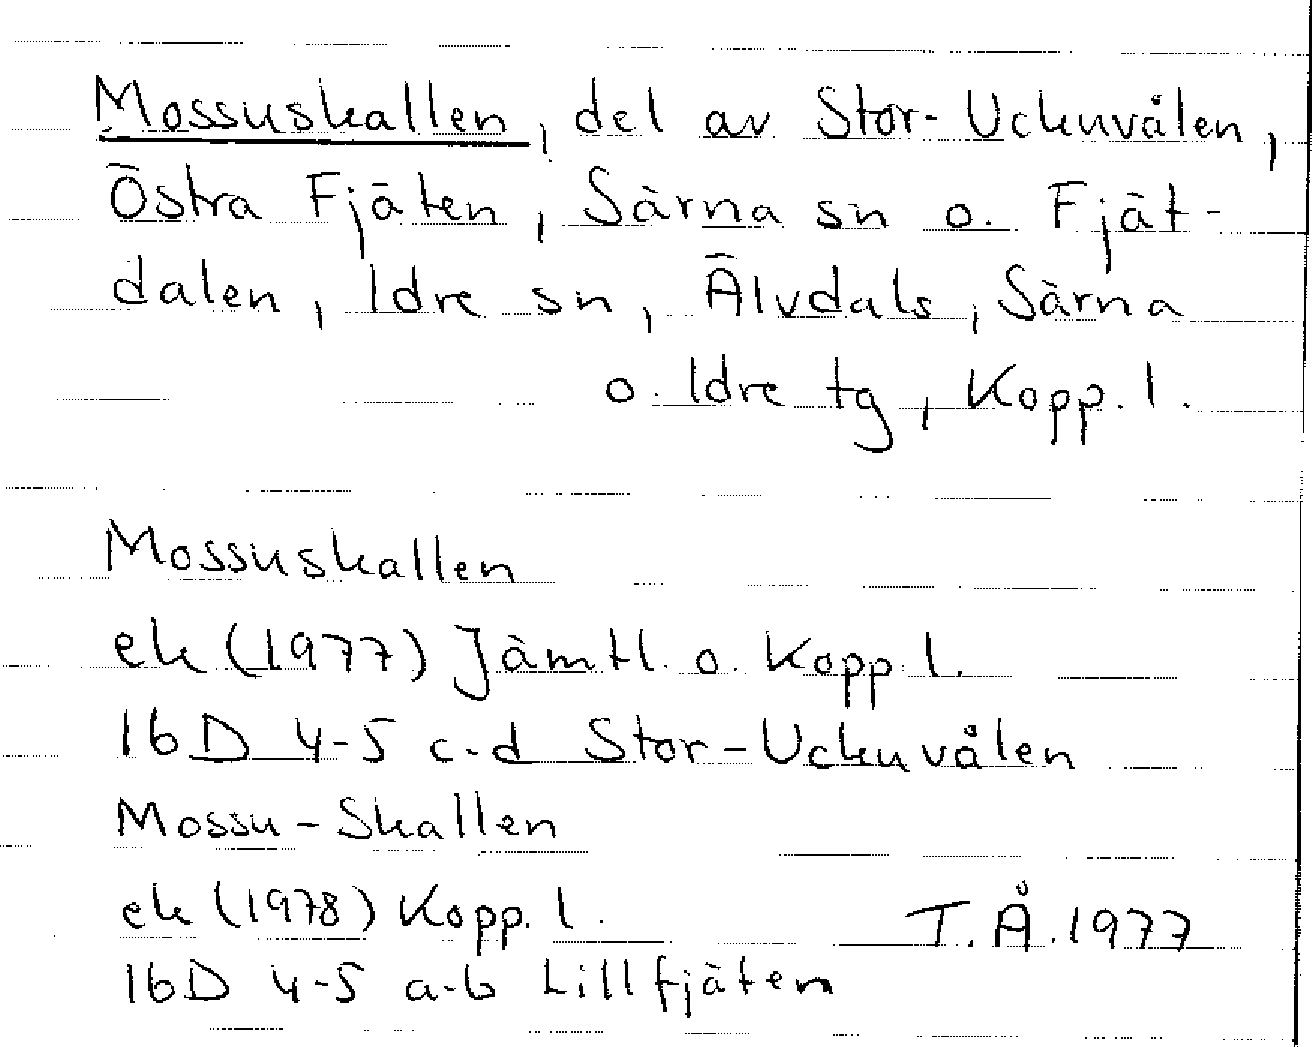 Mossuskallen, del av Stor-Uckuvålen,
Östra Fjäten, Särna sn o. Fjät-
dalen, Idre sn, Älvdals, Särna
o. Idre tg, Kopp. l.
Mossuskallen
ek (1977) Jämtl. o. Kopp. l.
16D 4-5 c-d Stor-Uckuvålen
Mossu-Skallen
ek (1978) Kopp. l.
T.Å. 1977
16D 4-5 a-b Lillfjäten